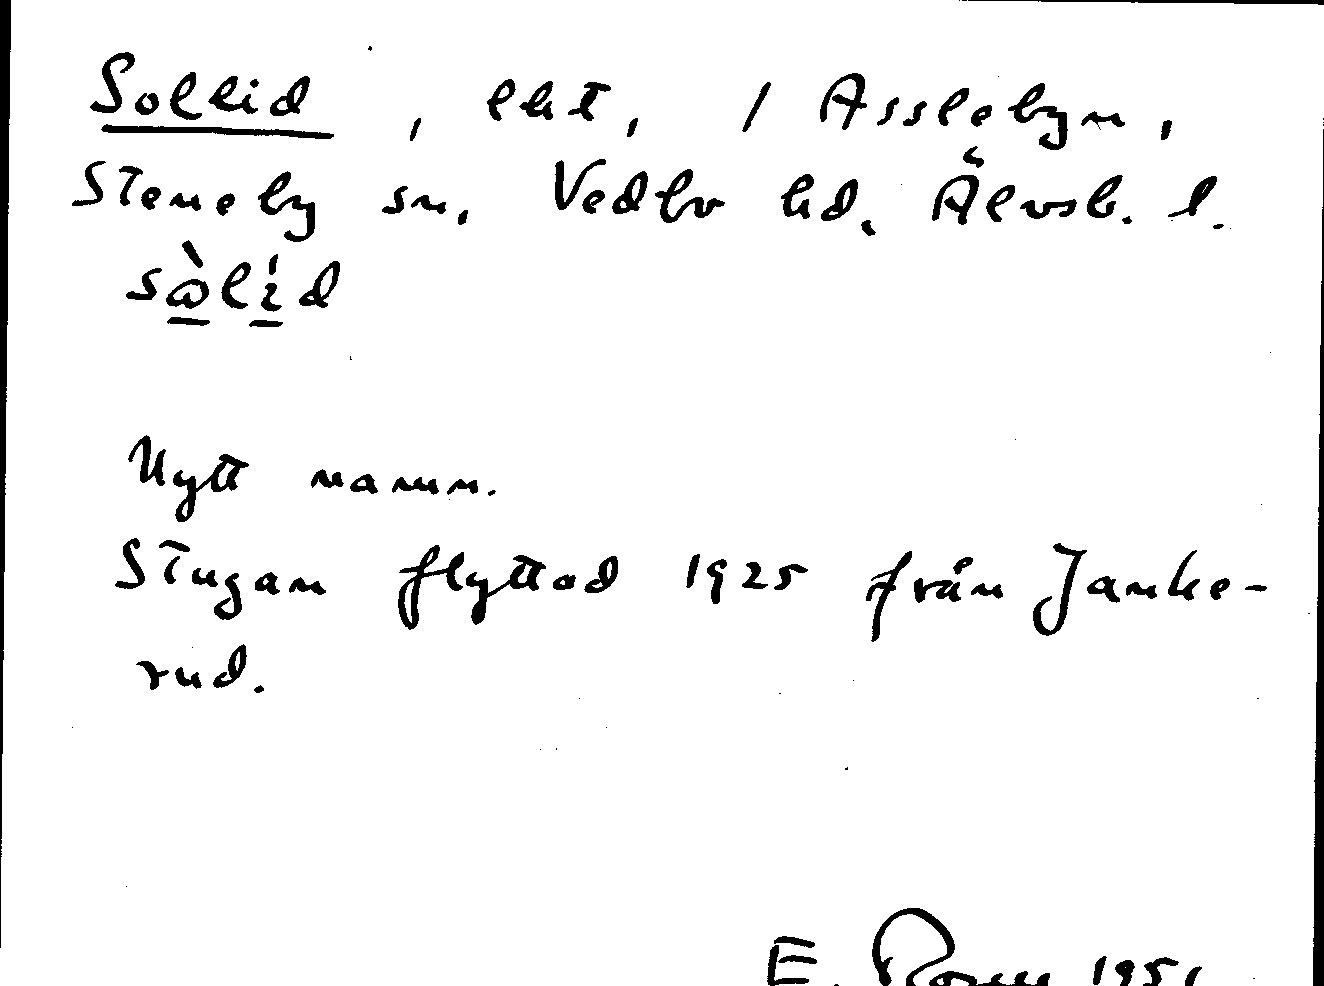 Sollid, lht, / Asslebyn,
Steneby sn. Vedbo hd. Älvsb. l.
Nytt namn.
Stugan flyttad 1925 från Janke-
rud.
E. 1951